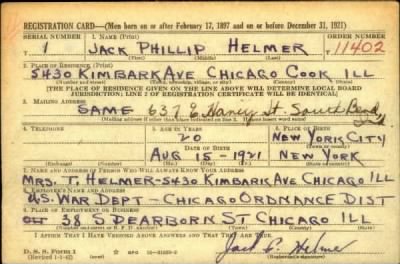 REGISTRATION CARD—(Men born on or after February 17, 1897 and on or before December 31, 1921)
SERIAL NUMBER 1. NAME (Print) ORDER NUMBER
1 JACK PHILLIP HELMER 11402
(First) (Middle) (Last)
2. PLACE OF RESIDENCE (Print)
5430 KIMBARK AVE CHICAGO COOK ILL
(Number and street) (Town, township, village, or city) (County) (State)
[THE PLACE OF RESIDENCE GIVEN ON THE LINE ABOVE WILL DETERMINE LOCAL BOARD
JURISDICTION; LINE 2 OF REGISTRATION CERTIFICATE WILL BE IDENTICAL]
3. MAILING ADDRESS
SAME 637 E St. South Bend
[Mailing address if other than place indicated on line 2. If same insert word same]
4. TELEPHONE 5. AGE IN YEARS 6. PLACE OF BIRTH
20 NEW YORK CITY
DATE OF BIRTH (Town or county)
AUG 15 - 1921 NEW YORK
(Exchange) (Number) (Mo.) (Day) (Yr.) (State or country)
7. NAME AND ADDRESS OF PERSON WHO WILL ALWAYS KNOW YOUR ADDRESS
MRS. T. HELMER - 5430 KIMBARK AVE CHICAGO ILL
8. EMPLOYER'S NAME AND ADDRESS
U.S. WAR DEPT - CHICAGO ORDNANCE DIST
9. PLACE OF EMPLOYMENT OR BUSINESS
38 S DEARBORN ST CHICAGO ILL
(Number and street or R. F. D. number) (Town) (County) (State)
I AFFIRM THAT I HAVE VERIFIED ABOVE ANSWERS AND THAT THEY ARE TRUE.
D. S. S. Form 1
(Revised 1-1-42) GPO
Jack P. Helmer